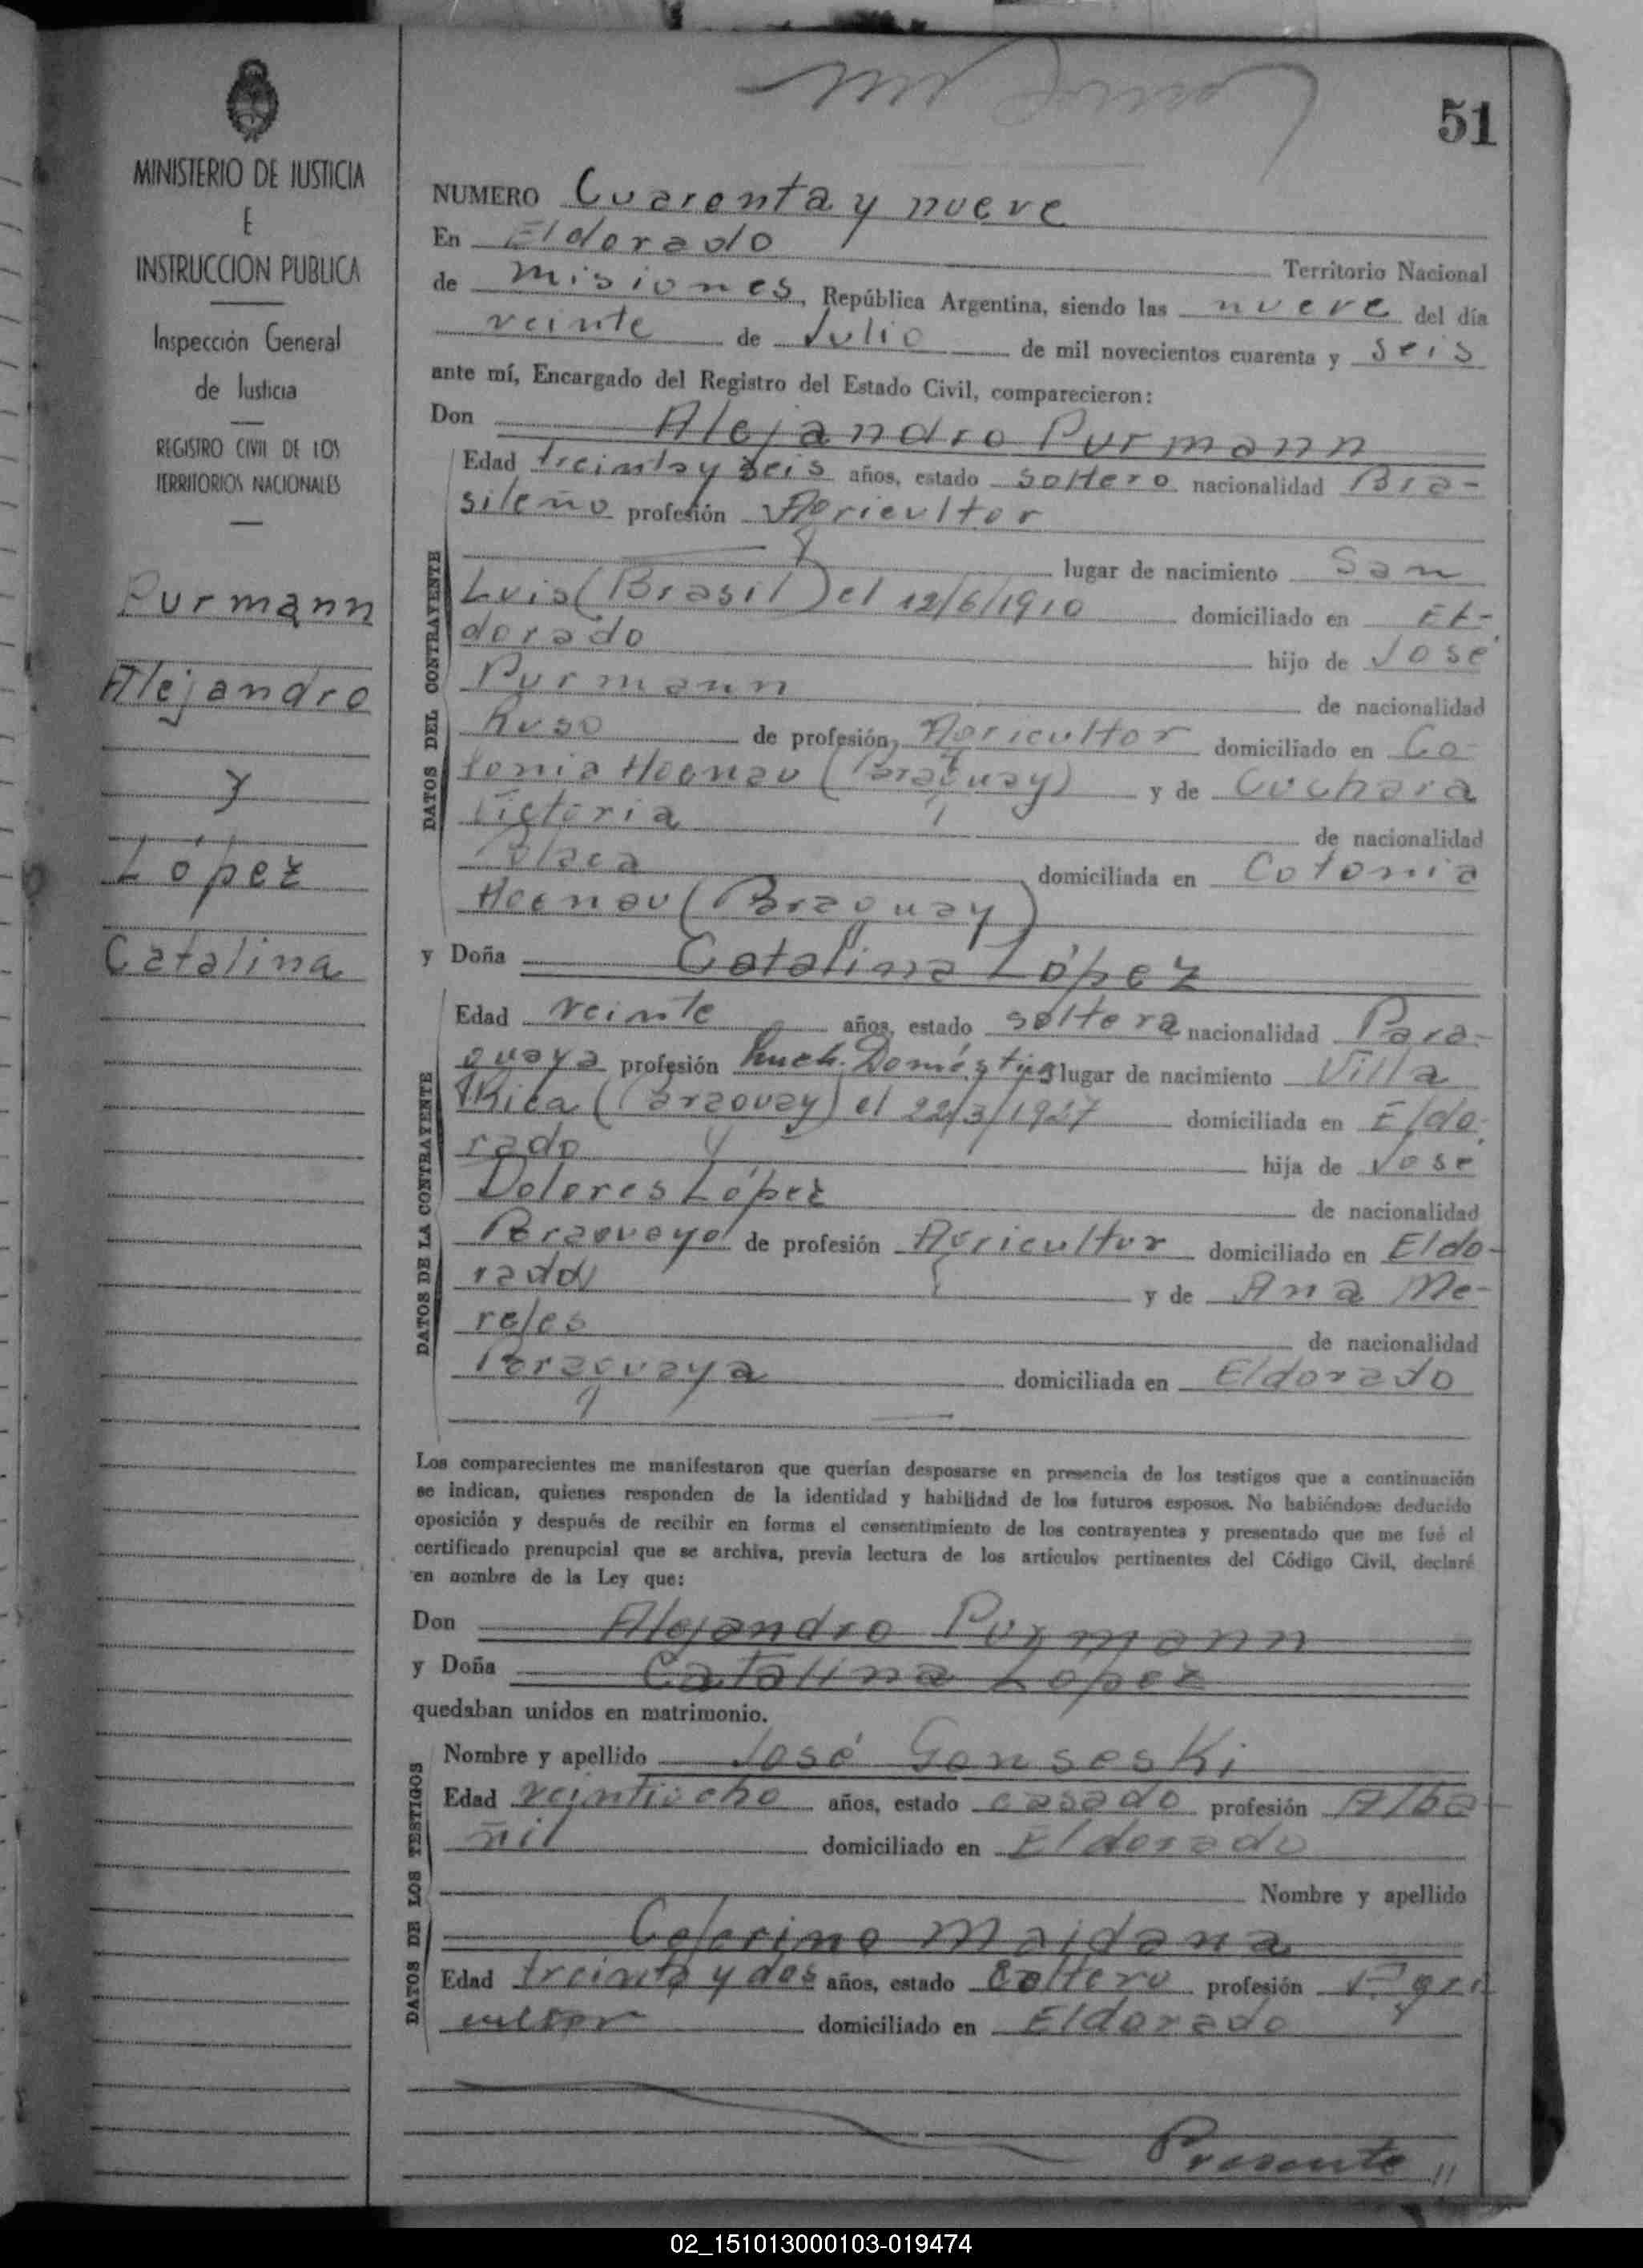 51
MINISTERIO DE JUSTICIA
E
INSTRUCCION PUBLICA
Inspección General
de Justicia
REGISTRO CIVIL DE LOS
TERRITORIOS NACIONALES
Purmann
Alejandro
y
López
Catalina
NUMERO Cuarenta y nueve
En Eldorado Territorio Nacional
de Misiones, República Argentina, siendo las nueve del día
veinte de Julio de mil novecientos cuarenta y seis
ante mí, Encargado del Registro del Estado Civil, comparecieron:
Don Alejandro Purmann
DATOS DEL CONTRAYENTE
Edad treinta y seis años, estado soltero nacionalidad Bra-
sileño profesión Agricultor
lugar de nacimiento San
Luis (Brasil) el 12/6/1910 domiciliado en El-
dorado hijo de José
Purmann de nacionalidad
Ruso de profesión Agricultor domiciliado en Co-
lonia Hoenau (Paraguay) y de Cuchara
Victoria de nacionalidad
Polaca domiciliada en Colonia
Hoenau (Paraguay)
y Doña Catalina López
DATOS DE LA CONTRAYENTE
Edad veinte años, estado soltera nacionalidad Para-
guaya profesión Domést lugar de nacimiento Villa
Rica (Paraguay) el 22/3/1927 domiciliada en Eldo-
rado hija de José
Dolores López de nacionalidad
Paraguayo de profesión Agricultor domiciliado en Eldo-
rado y de Ana Me-
reles de nacionalidad
Paraguaya domiciliada en Eldorado
Los comparecientes me manifestaron que querían desposarse en presencia de los testigos que a continuación
se indican, quienes responden de la identidad y habilidad de los futuros esposos. No habiéndose deducido
oposición y después de recibir en forma el consentimiento de los contrayentes y presentado que me fué el
certificado prenupcial que se archiva, previa lectura de los artículos pertinentes del Código Civil, declaré
en nombre de la Ley que:
Don Alejandro Purmann
y Doña Catalina López
quedaban unidos en matrimonio.
DATOS DE LOS TESTIGOS
Nombre y apellido José Gonseski
Edad veintiocho años, estado casado profesión Alba-
ñil domiciliado en Eldorado
Nombre y apellido
Celerino Maidana
Edad treinta y dos años, estado soltero profesión Agri
cultor domiciliado en Eldorado
Presente //
02_151013000103-019474